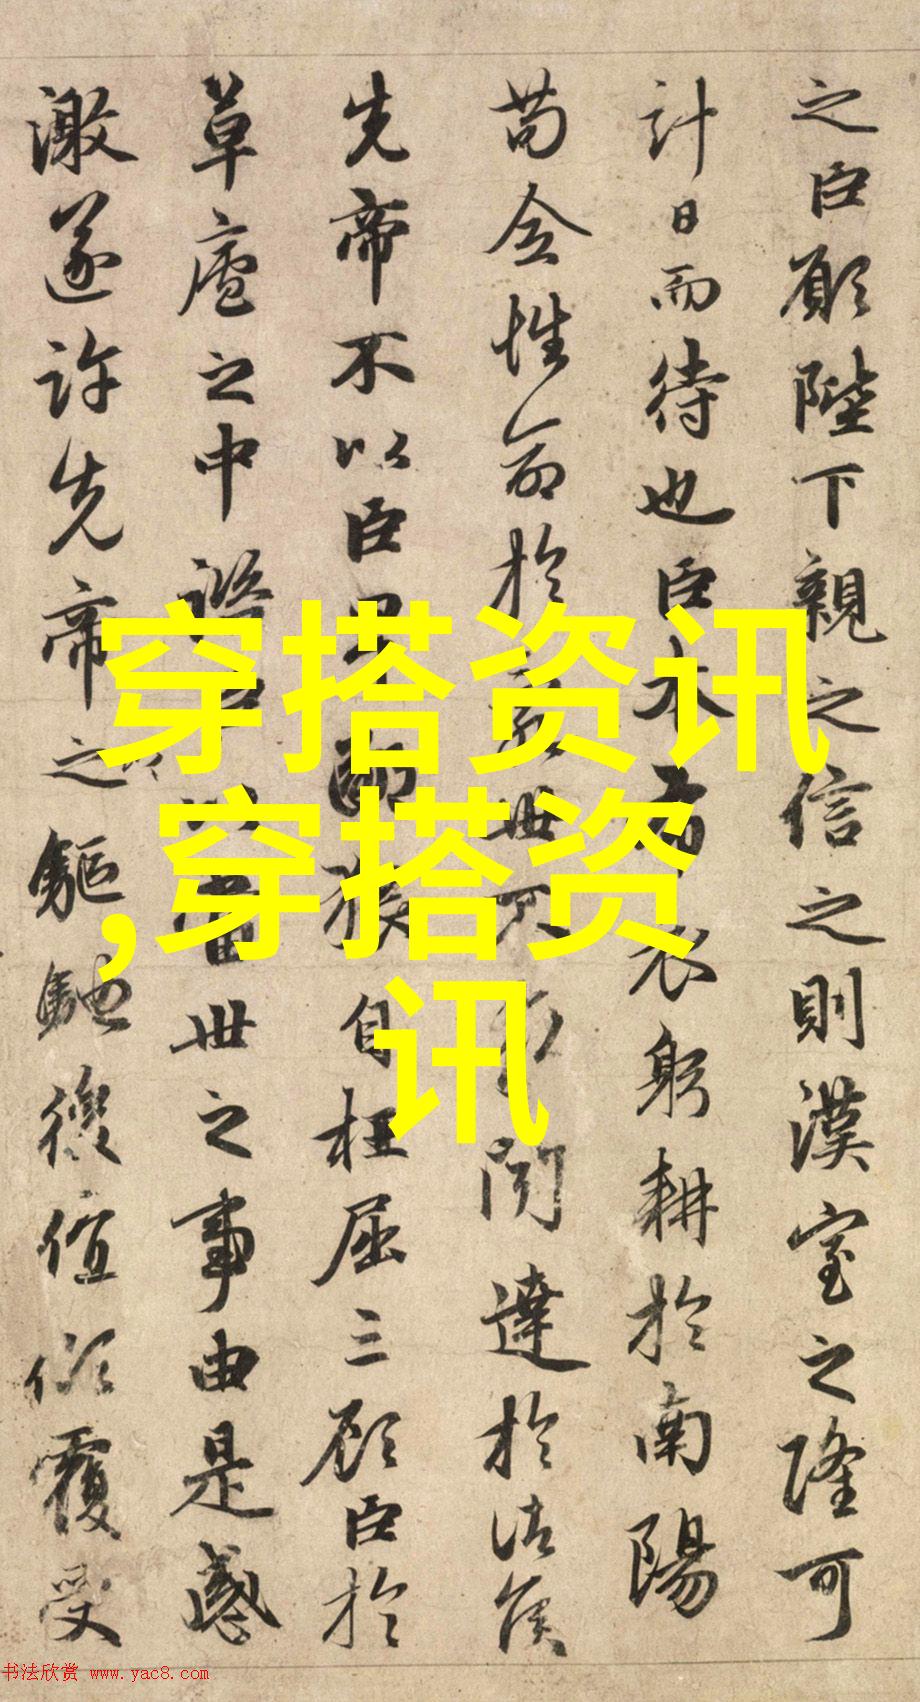 之臣願陛下親之信之則漢室之隆可
計日而待也臣本布衣躬耕於南陽
苟全性命於亂世不求聞達於諸侯
先帝不以臣卑鄙猥自枉屈三顧臣於
草廬之中諮臣以當世之事由是感
激遂許先帝之驅馳後值傾覆受
穿搭资讯
,穿搭资
讯
书法欣赏 www.yac8.com